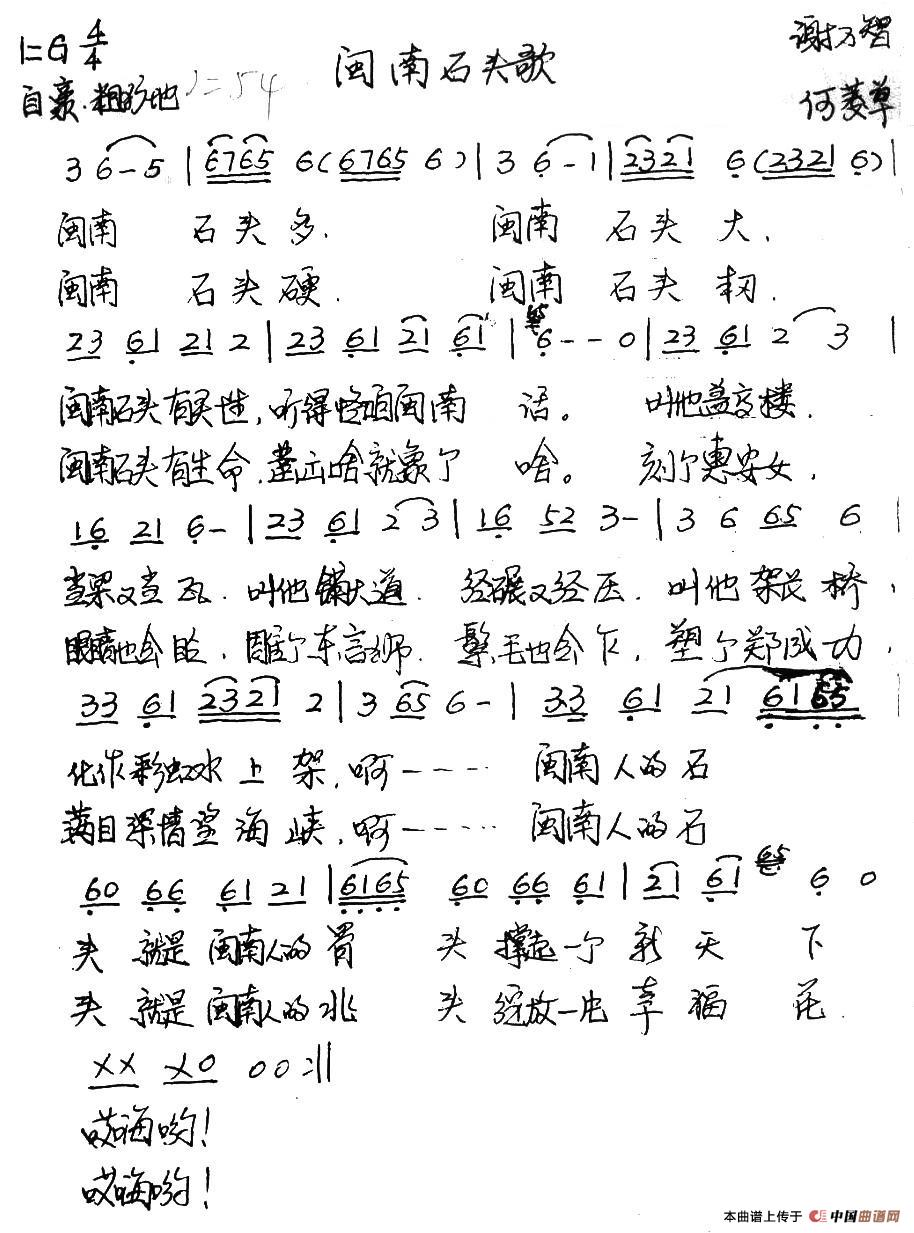 1=G 4/4
闽南石头歌
谢万智
自豪.粗犷地 ♩=54
何菱草
3 6 - 5 | 6765 6 (6765 6) | 3 6 - 1 | 2321 6 (2321 6) |
闽南 石头多. 闽南 石头大.
闽南 石头硬. 闽南 石头韧.
23 61 21 2 | 23 61 21 61 | 65 6 - - 0 | 23 61 2 3 |
闽南石头有灵性,听得咱闽南话。 叫他盖高楼.
闽南石头有生命.凿出啥就象个啥。 刻个惠安女,
16 21 6 - | 23 61 2 3 | 16 52 3 - | 3 6 65 6 |
当梁又当瓦. 叫他铺大道. 经碾又经压. 叫他架长桥,
眼睛也会眨. 雕个东言狮. 鬃毛也会乍. 塑个郑成功,
33 61 2321 2 | 3 65 6 - | 33 61 21 6165 |
化作彩虹水上架,啊---- 闽南人的石
满目深情望海峡,啊---- 闽南人的石
60 66 61 21 | 6165 60 66 61 | 21 61 65 6 0
头 就是闽南人的骨头 撑起一个新天下
头 就是闽南人的兆头 绽放一片幸福花
XX X0 0 0 :||
哎嗨哟!
哎嗨哟!
本曲谱上传于 中国曲谱网